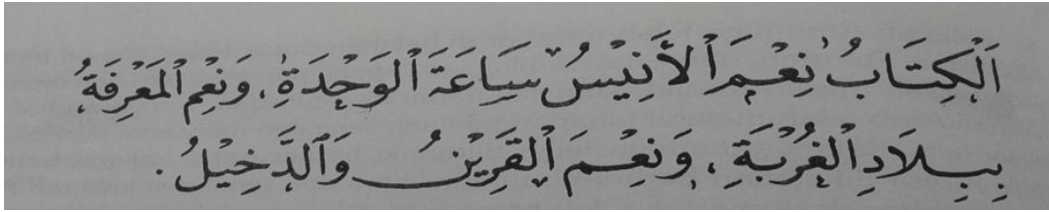 اَلْكِتَابُ نِعْمَ ٱلْأَنِيْسُ سَاعَةَ ٱلْوَحْدَةِ، وَنِعْمَ ٱلْمَعْرِفَةُ
بِبِلَادِ ٱلْغُرْبَةِ، وَنِعْمَ ٱلْقَرِيْنُ وَٱلدَّخِيْلُ.